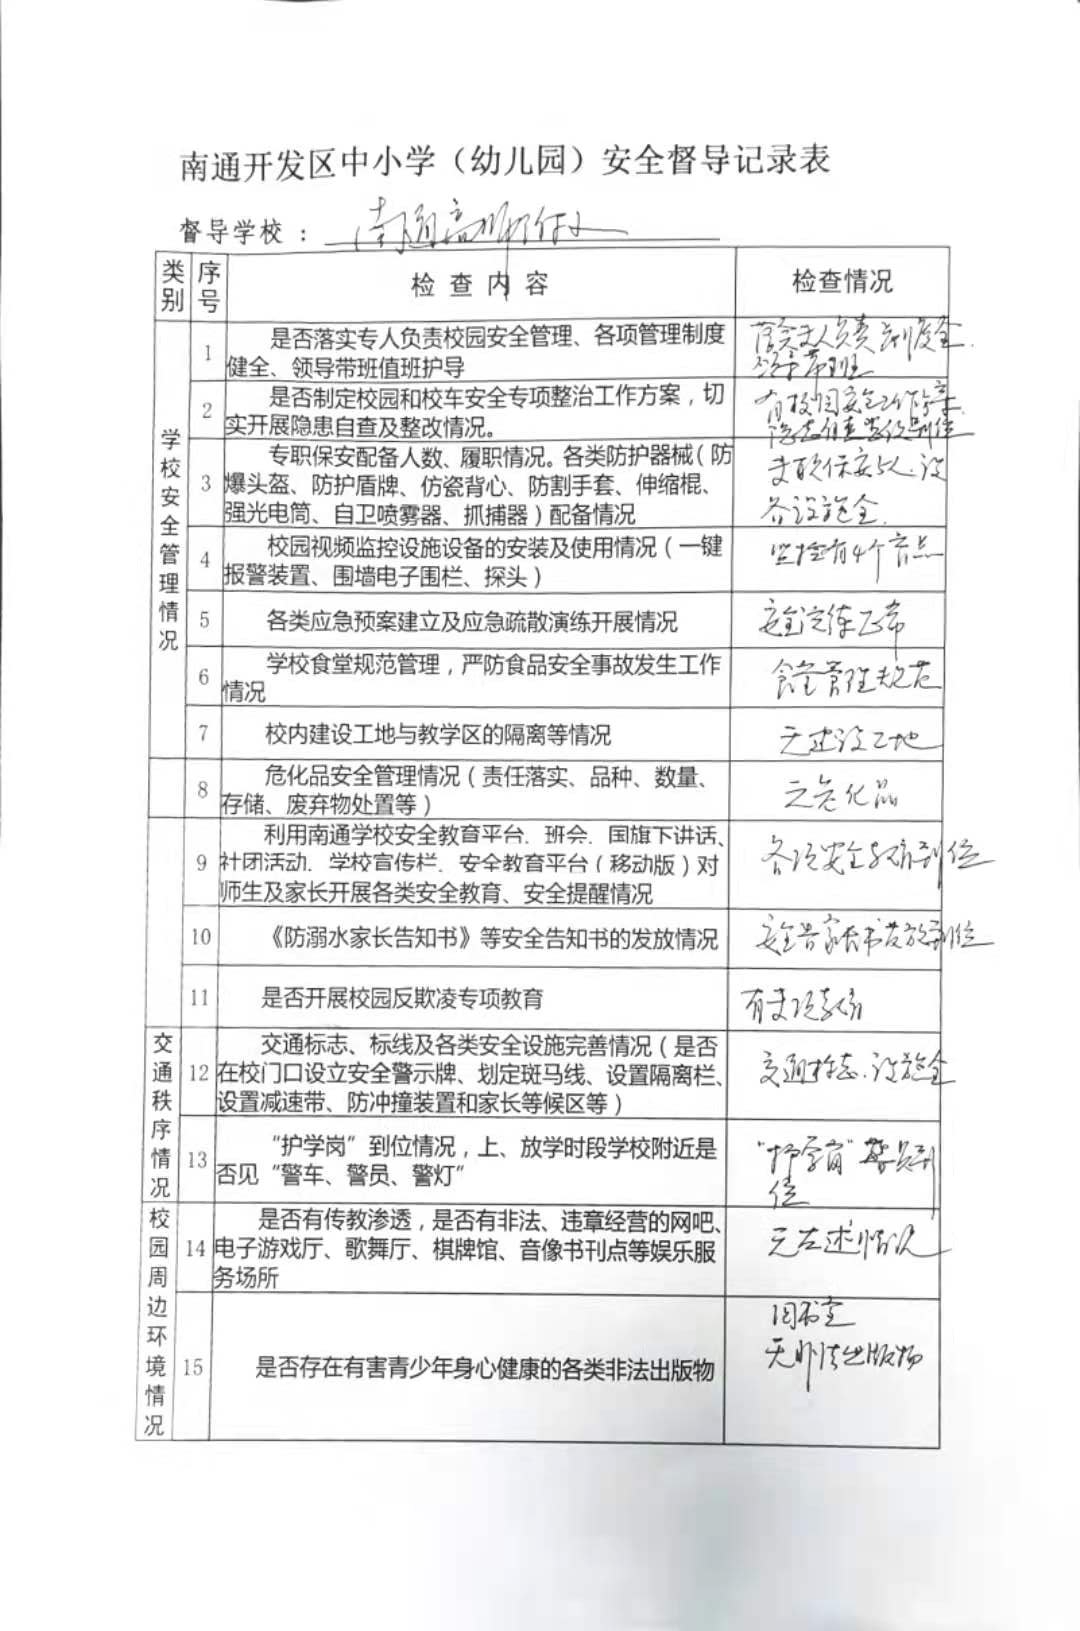 南通开发区中小学（幼儿园）安全督导记录表
督导学校：南通高师附小
类别
序号
检查内容
检查情况
学校安全管理情况
1
是否落实专人负责校园安全管理、各项管理制度
健全、领导带班值班护导
落实专人负责 制度全.
领导带班
2
是否制定校园和校车安全专项整治工作方案，切
实开展隐患自查及整改情况。
有校园安全工作方案.
隐患自查
到位
3
专职保安配备人数、履职情况。各类防护器械（防
爆头盔、防护盾牌、仿瓷背心、防割手套、伸缩棍、
强光电筒、自卫喷雾器、抓捕器）配备情况
专职保安5人.设
备设施全.
4
校园视频监控设施设备的安装及使用情况（一键
报警装置、围墙电子围栏、探头）
监控有4个盲点
5
各类应急预案建立及应急疏散演练开展情况
安全演练正常
6
学校食堂规范管理，严防食品安全事故发生工作
情况
食堂管理规范
7
校内建设工地与教学区的隔离等情况
无建设工地
8
危化品安全管理情况（责任落实、品种、数量、
存储、废弃物处置等）
无危化品
9
利用南通学校安全教育平台、班会、国旗下讲话、
社团活动、学校宣传栏、安全教育平台（移动版）对
师生及家长开展各类安全教育、安全提醒情况
各项安全教育到位
10
《防溺水家长告知书》等安全告知书的发放情况
安全告家长书发放到位
11
是否开展校园反欺凌专项教育
有专项教育
交通秩序情况
12
交通标志、标线及各类安全设施完善情况（是否
在校门口设立安全警示牌、划定斑马线、设置隔离栏、
设置减速带、防冲撞装置和家长等候区等）
交通标志.设施全
13
“护学岗”到位情况，上、放学时段学校附近是
否见“警车、警员、警灯”
“护学岗”警员到
位
校园周边环境情况
14
是否有传教渗透，是否有非法、违章经营的网吧、
电子游戏厅、歌舞厅、棋牌馆、音像书刊点等娱乐服
务场所
无左述情况
15
是否存在有害青少年身心健康的各类非法出版物
图书室
无非法出版物